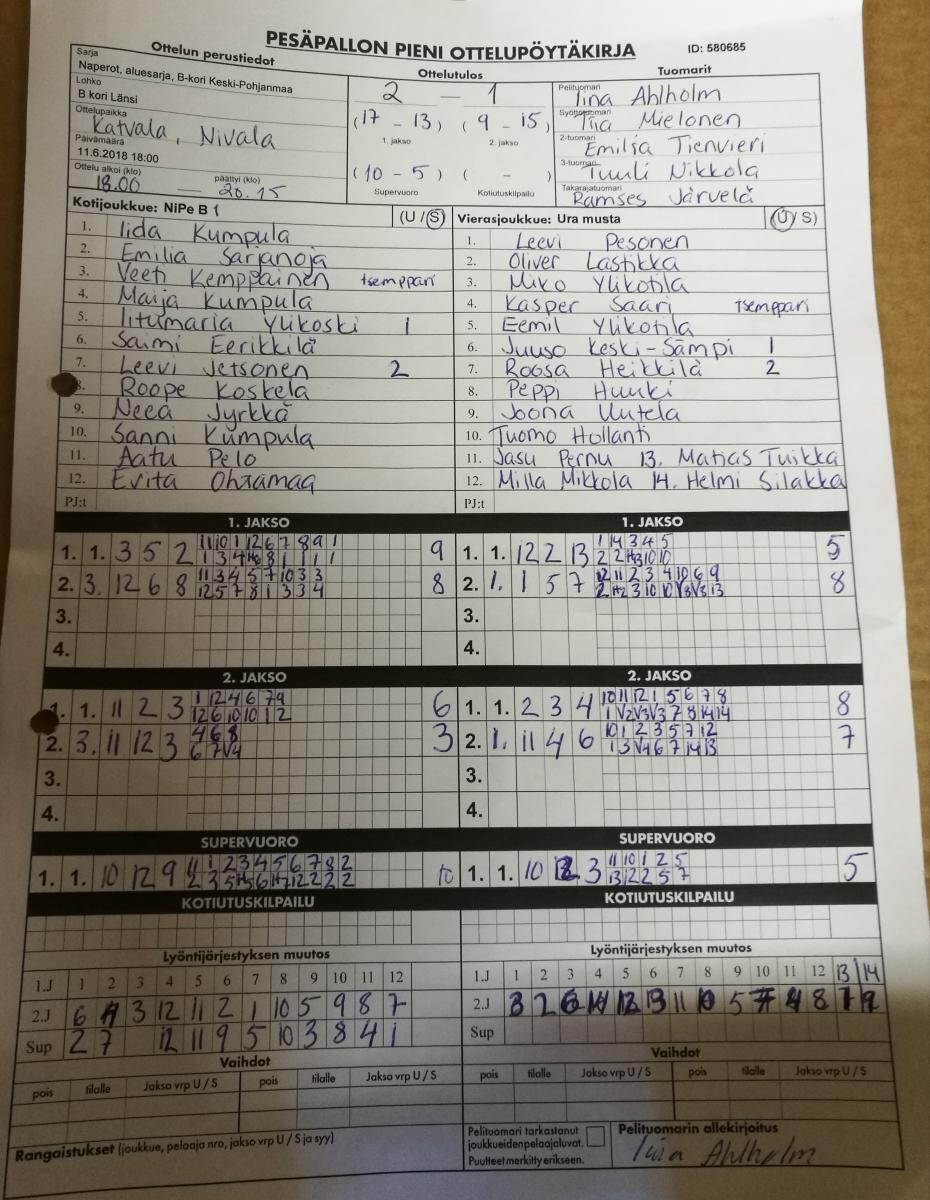 PESÄPALLON PIENI OTTELUPÖYTÄKIRJA
ID: 580685
Ottelun perustiedot
Sarja
Naperot, aluesarja, B-kori Keski-Pohjanmaa
Lohko
B kori Länsi
Ottelupaikka
Katvala, Nivala
Päivämäärä
11.6.2018 18:00
Ottelu alkoi (klo) päättyi (klo)
18.00 — 20.15
Ottelutulos
2 — 1
(17 - 13) (9 - 15)
1. jakso 2. jakso
(10 - 5) ( - )
Supervuoro Kotiutuskilpailu
Tuomarit
Pelituomari
Tiina Ahlholm
Syöttötuomari
Tiia Mielonen
2-tuomari
Emilia Tienvieri
3-tuomari
Tuuli Nikkola
Takarajatuomari
Ramses Järvelä
Kotijoukkue: NiPe B 1 (U / S)
1. Iida Kumpula
2. Emilia Sarjanoja
3. Veeti Kemppainen tsemppari
4. Maija Kumpula
5. Iitumaria Ylikoski 1
6. Saimi Eerikkilä
7. Leevi Jetsonen 2
8. Roope Koskela
9. Neea Jyrkkä
10. Sanni Kumpula
11. Aatu Pelo
12. Evita Ohramaa
PJ:t
Vierasjoukkue: Ura musta (U / S)
1. Leevi Pesonen
2. Oliver Lastikka
3. Miko Ylikotila
4. Kasper Saari tsemppari
5. Eemil Ylikotila
6. Juuso Keski-Sämpi 1
7. Roosa Heikkilä 2
8. Peppi Huuki
9. Joona Uutela
10. Tuomo Hollanti
11. Jasu Pernu 13. Matias Tuikka
12. Milla Mikkola 14. Helmi Silakka
PJ:t
1. JAKSO
1. 1. 3 5 2 9
2. 3. 12 6 8 8
3.
4.
1. JAKSO
1. 1. 12 2 13 5
2. 1. 1 5 7 8
3.
4.
2. JAKSO
1. 1. 11 2 3 6
2. 3. 11 12 3 3
3.
4.
2. JAKSO
1. 1. 2 3 4 8
2. 1. 11 4 6 7
3.
4.
SUPERVUORO
1. 1. 10 12 9 10
SUPERVUORO
1. 1. 10 3 5
KOTIUTUSKILPAILU
KOTIUTUSKILPAILU
Lyöntijärjestyksen muutos
1.J 1 2 3 4 5 6 7 8 9 10 11 12
2.J 6 3 12 11 2 1 10 5 9 8 7
Sup 2 7 12 11 9 5 10 3 8 4 1
Lyöntijärjestyksen muutos
1.J 1 2 3 4 5 6 7 8 9 10 11 12 13 14
2.J 3 2 11 5 8
Sup
Vaihdot
pois tilalle Jakso vrp U / S pois tilalle Jakso vrp U / S
Vaihdot
pois tilalle Jakso vrp U / S pois tilalle Jakso vrp U / S
Rangaistukset (joukkue, pelaaja nro, jakso vrp U / S ja syy)
Pelituomari tarkastanut
joukkueiden pelaajaluvat.
Puutteet merkitty erikseen.
Pelituomarin allekirjoitus
Tiina Ahlholm